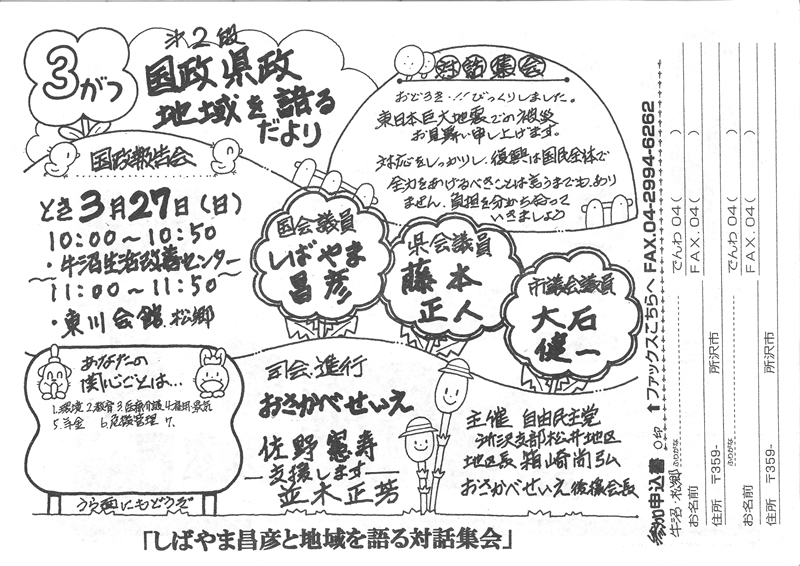 3がつ
第2段
国政県政
地域を語る
だより
対話集会
おどろき・!!びっくりしました。
東日本巨大地震での被災
お見舞い申し上げます。
対応をしっかりし、復興は国民全体で
全力をあげるべきことは言うまでもあり
ません、負担を分かち合って
いきましょう
国政報告会
とき3月27日(日)
10:00~10:50
・牛沼生活改善センター
11:00~11:50
・東川会館.松郷
国会議員
しばやま
昌彦
県会議員
藤本
正人
市議会議員
大石
健一
あなたの
関心ごとは…
1.環境 2.教育 3.医療介護 4.雇用.景気
5.年金 6.危機管理 7.
うら面にもどうぞ
司会.進行
おさかべせいえ
佐野憲寿
支援します
並木正芳
主催 自由民主党
所沢支部松井地区
地区長 箱崎尚弘
おさかべせいえ後援会長
「しばやま昌彦と地域を語る対話集会」
参加申込書 ○印 ⬆ファックスこちらへ FAX.04-2994-6262
牛沼・松郷 ふりがな でんわ 04( )
お名前 FAX.04(
住所 〒359- 所沢市
ふりがな でんわ 04( )
お名前 FAX.04(
住所 〒359- 所沢市